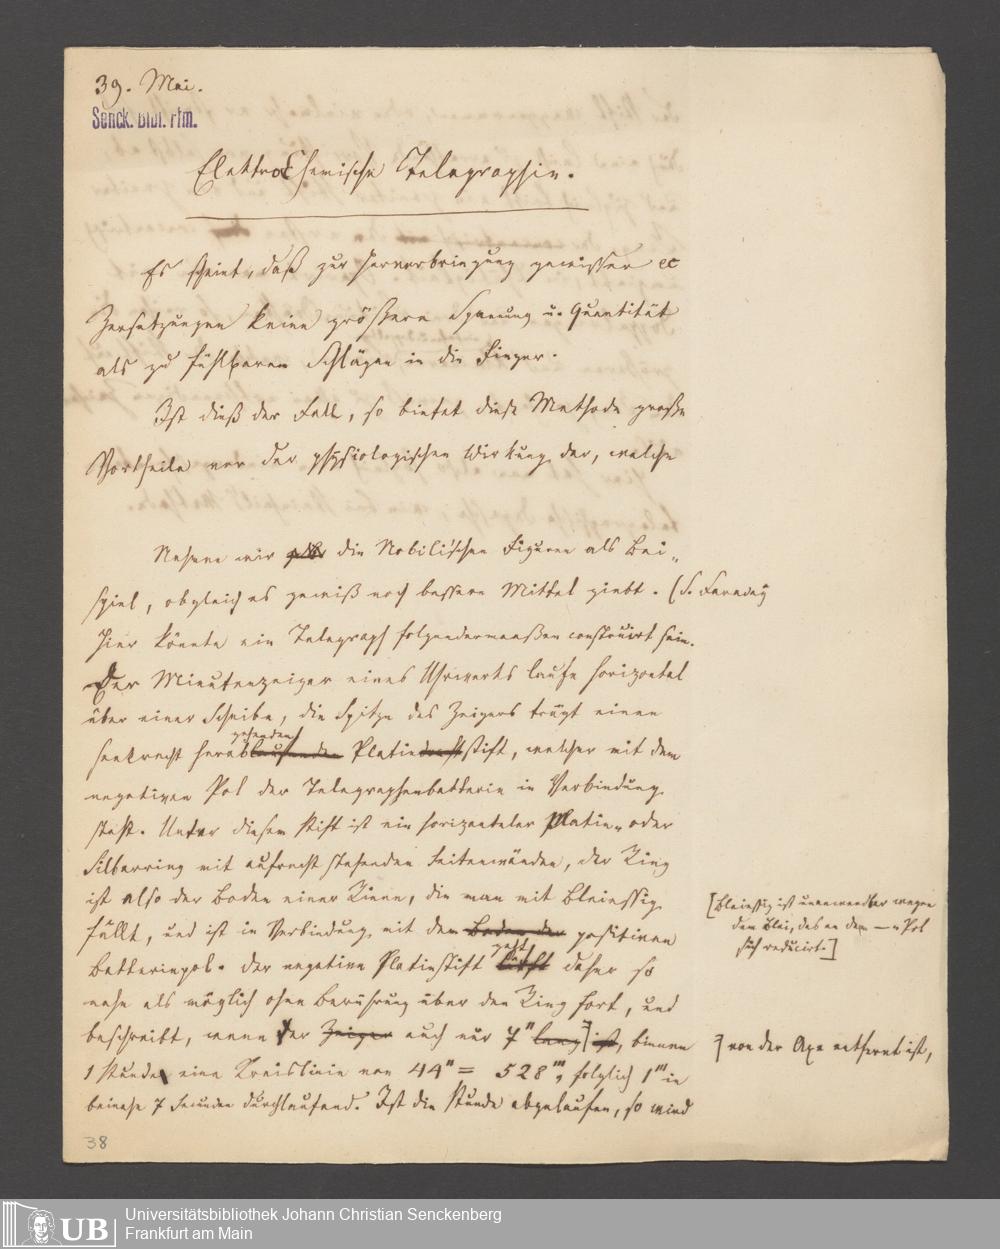 39. Mai.
Senck. Bibl. Ffm.
Elektrochemische Telegraphie.
Es scheint, daß zur Hervorbringung gewisser ec
Zersetzungen keine größere Spanung u. Quantität
als zu fühlbaren Schlägen in die Finger.
Ist dieß der Fall, so bietet diese Methode große
Vortheile vor der physiologischen Wirkung dar, welche
Nehmen wir die Nobili'schen Figuren als Bei„
spiel, obgleich es gewiß noch bessere Mittel giebt. (S. Faraday
Hier könnte ein Telegraph folgendermaaßen construirt sein.
Der Minutenzeiger eines Uhrwerks laufe horizontal
über einer Scheibe, die Spitze des Zeigers trägt einen
gehenden
senkrecht herablaufenden Platindrahtstift, welcher mit dem
negativen Pol der Telegraphenbatterie in Verbindung
steht. Unter diesem Stift ist ein horizontaler Platin„ oder
Silberring mit aufrecht stehenden Seitenwänden, der Ring
ist also der Boden einer Rinne, die man mit Bleiessig
füllt, und ist in Verbindung mit dem Boden der positiven
geht
Batteriepol. Der negative Platinstift läuft daher so
nahe als möglich ohne Berührung über den Ring fort, und
beschreibt, wenn der Zeiger auch nur 7" lang] ist, binnen
1 Stunde eine Kreislinie von 44" = 528"', folglich 1"' in
beinahe 7 Secunden durchlaufend. Ist die Stunde abgelaufen, so wird
[Bleiessig ist unanwendbar wegen
dem Blei, das an dem — Pol
sich reducirt.]
] von der Axe entfernt ist,
38
UB
Universitätsbibliothek Johann Christian Senckenberg
Frankfurt am Main